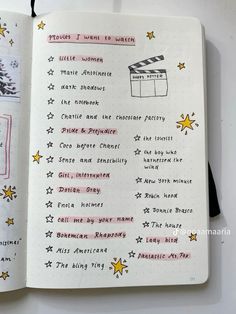 Movies I want to watch
little women
Marie Antoinette
dark shadows
the notebook
Charlie and the chocolate factory
Pride & Prejudice
Coco before Chanel
Sense and sensibility
Girl, interrupted
Dorian Gray
Enola holmes
call me by your name
Bohemian Rhapsody
Miss Americana
The bling ring
HARRY POTTER
the tourist
the boy who
harnessed the
wind
New York minute
Robin hood
Donnie Brasco
The house
Lady bird
Fantastic Mr. Fox